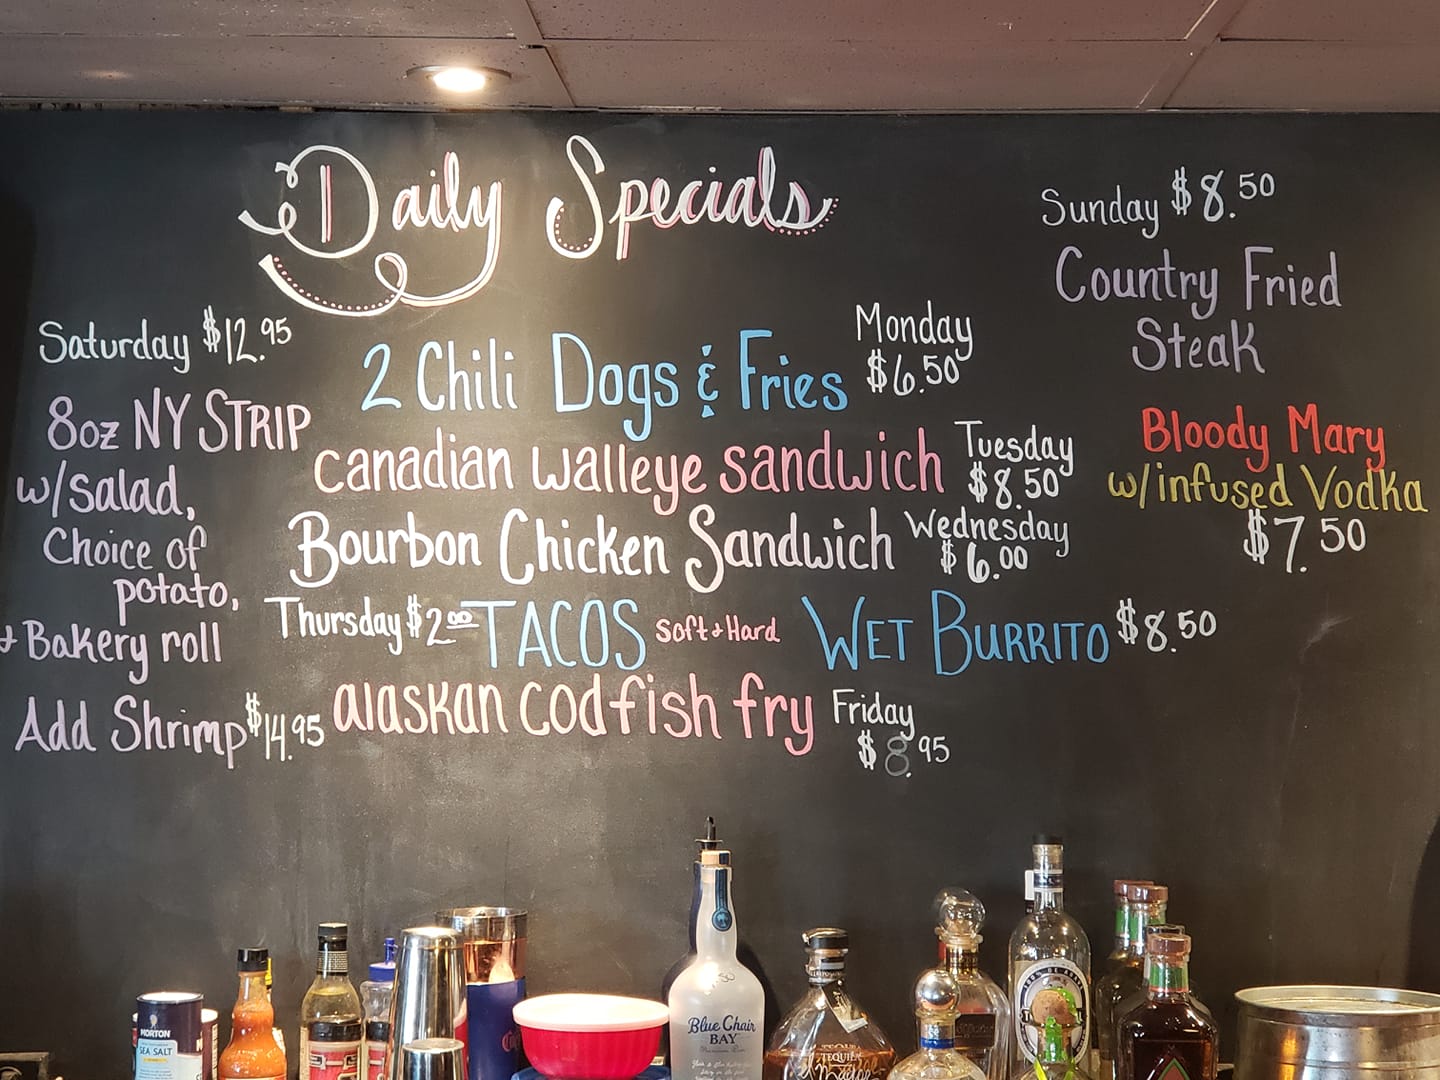 Daily Specials
Saturday $12.95
8oz NY STRIP
w/salad,
Choice of
potato,
+ Bakery roll
Add Shrimp $14.95
2 Chili Dogs & Fries Monday $6.50
canadian walleye sandwich Tuesday $8.50
Bourbon Chicken Sandwich Wednesday $6.00
Thursday $2.00 TACOS Soft + Hard WET BURRITO $8.50
alaskan cod fish fry Friday $8.95
Sunday $8.50
Country Fried
Steak
Bloody Mary
w/infused Vodka
$7.50
MORTON
SEA SALT
Blue Chair
BAY
TEQUILA